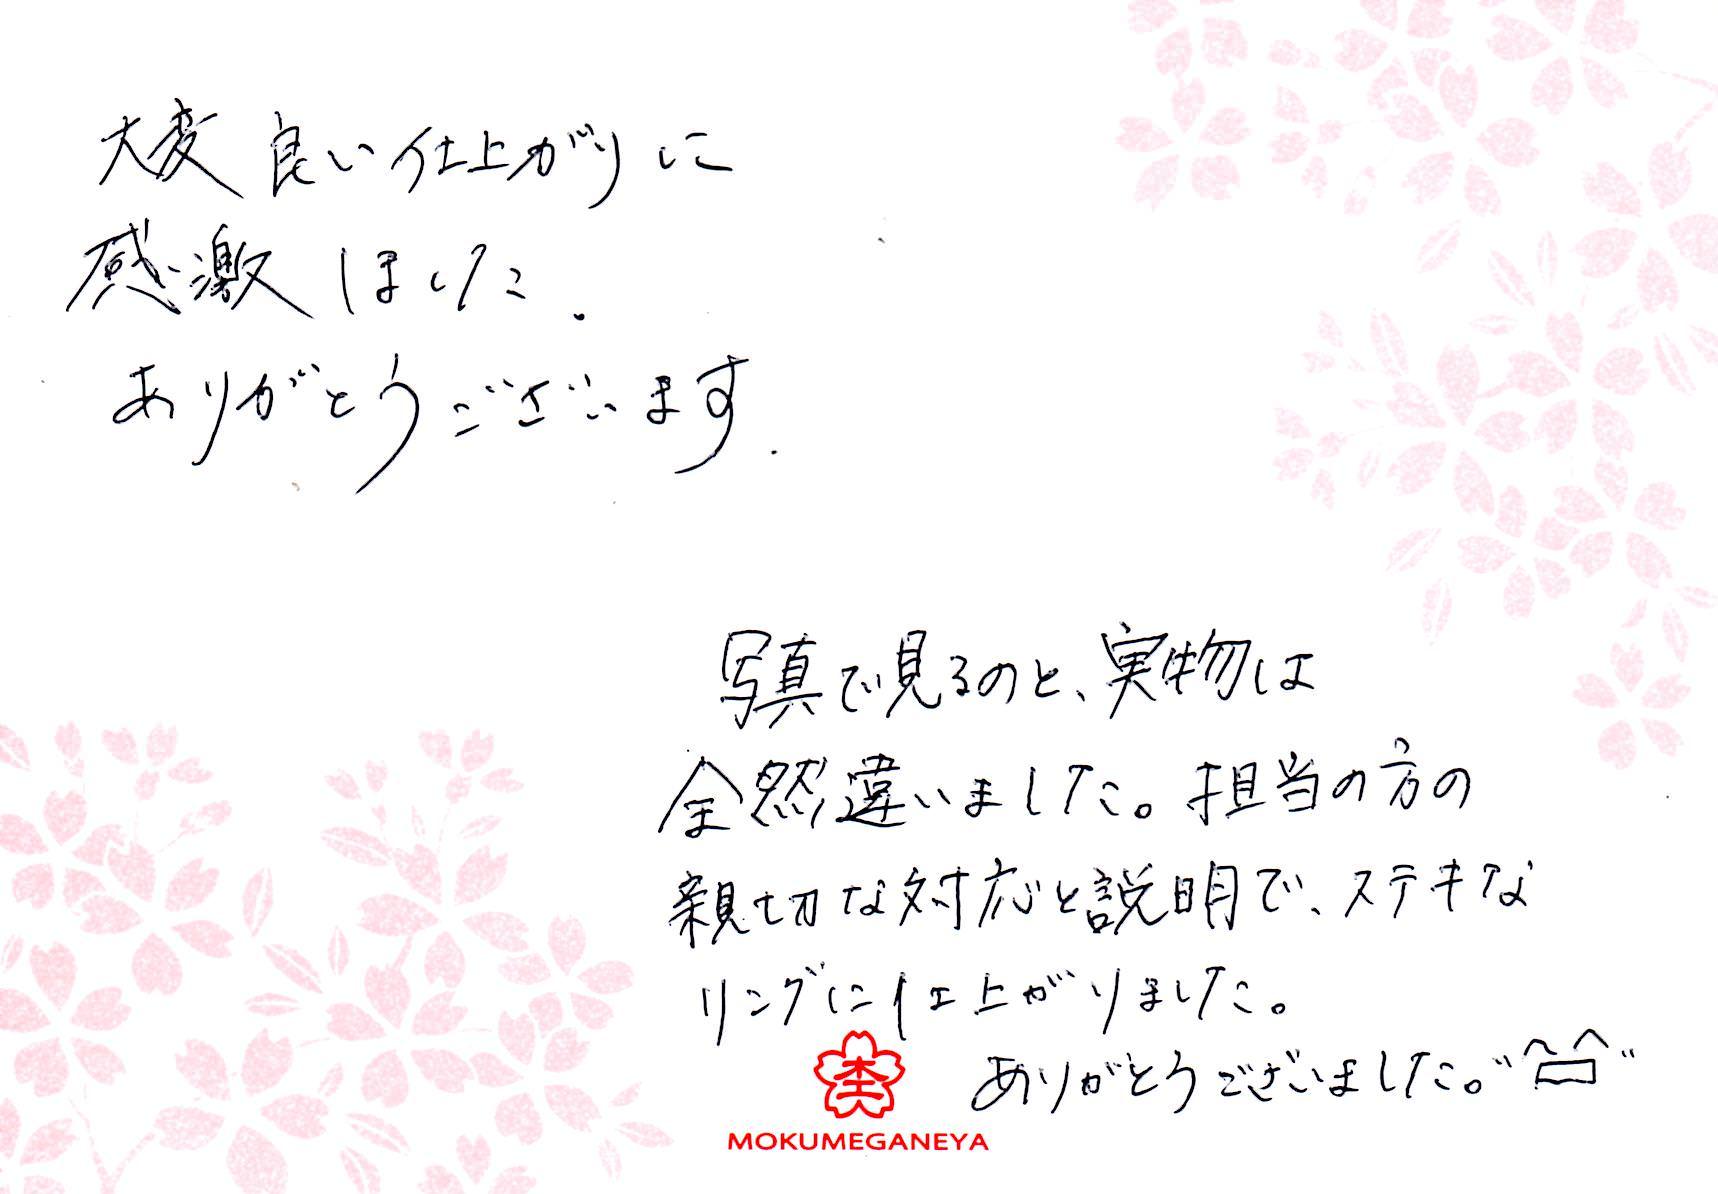 大変良い仕上がりに
感激しました.
ありがとうございます.
写真で見るのと、実物は
全然違いました。担当の方の
親切な対応と説明で、ステキな
リングに仕上がりました。
ありがとうございました。
MOKUMEGANEYA